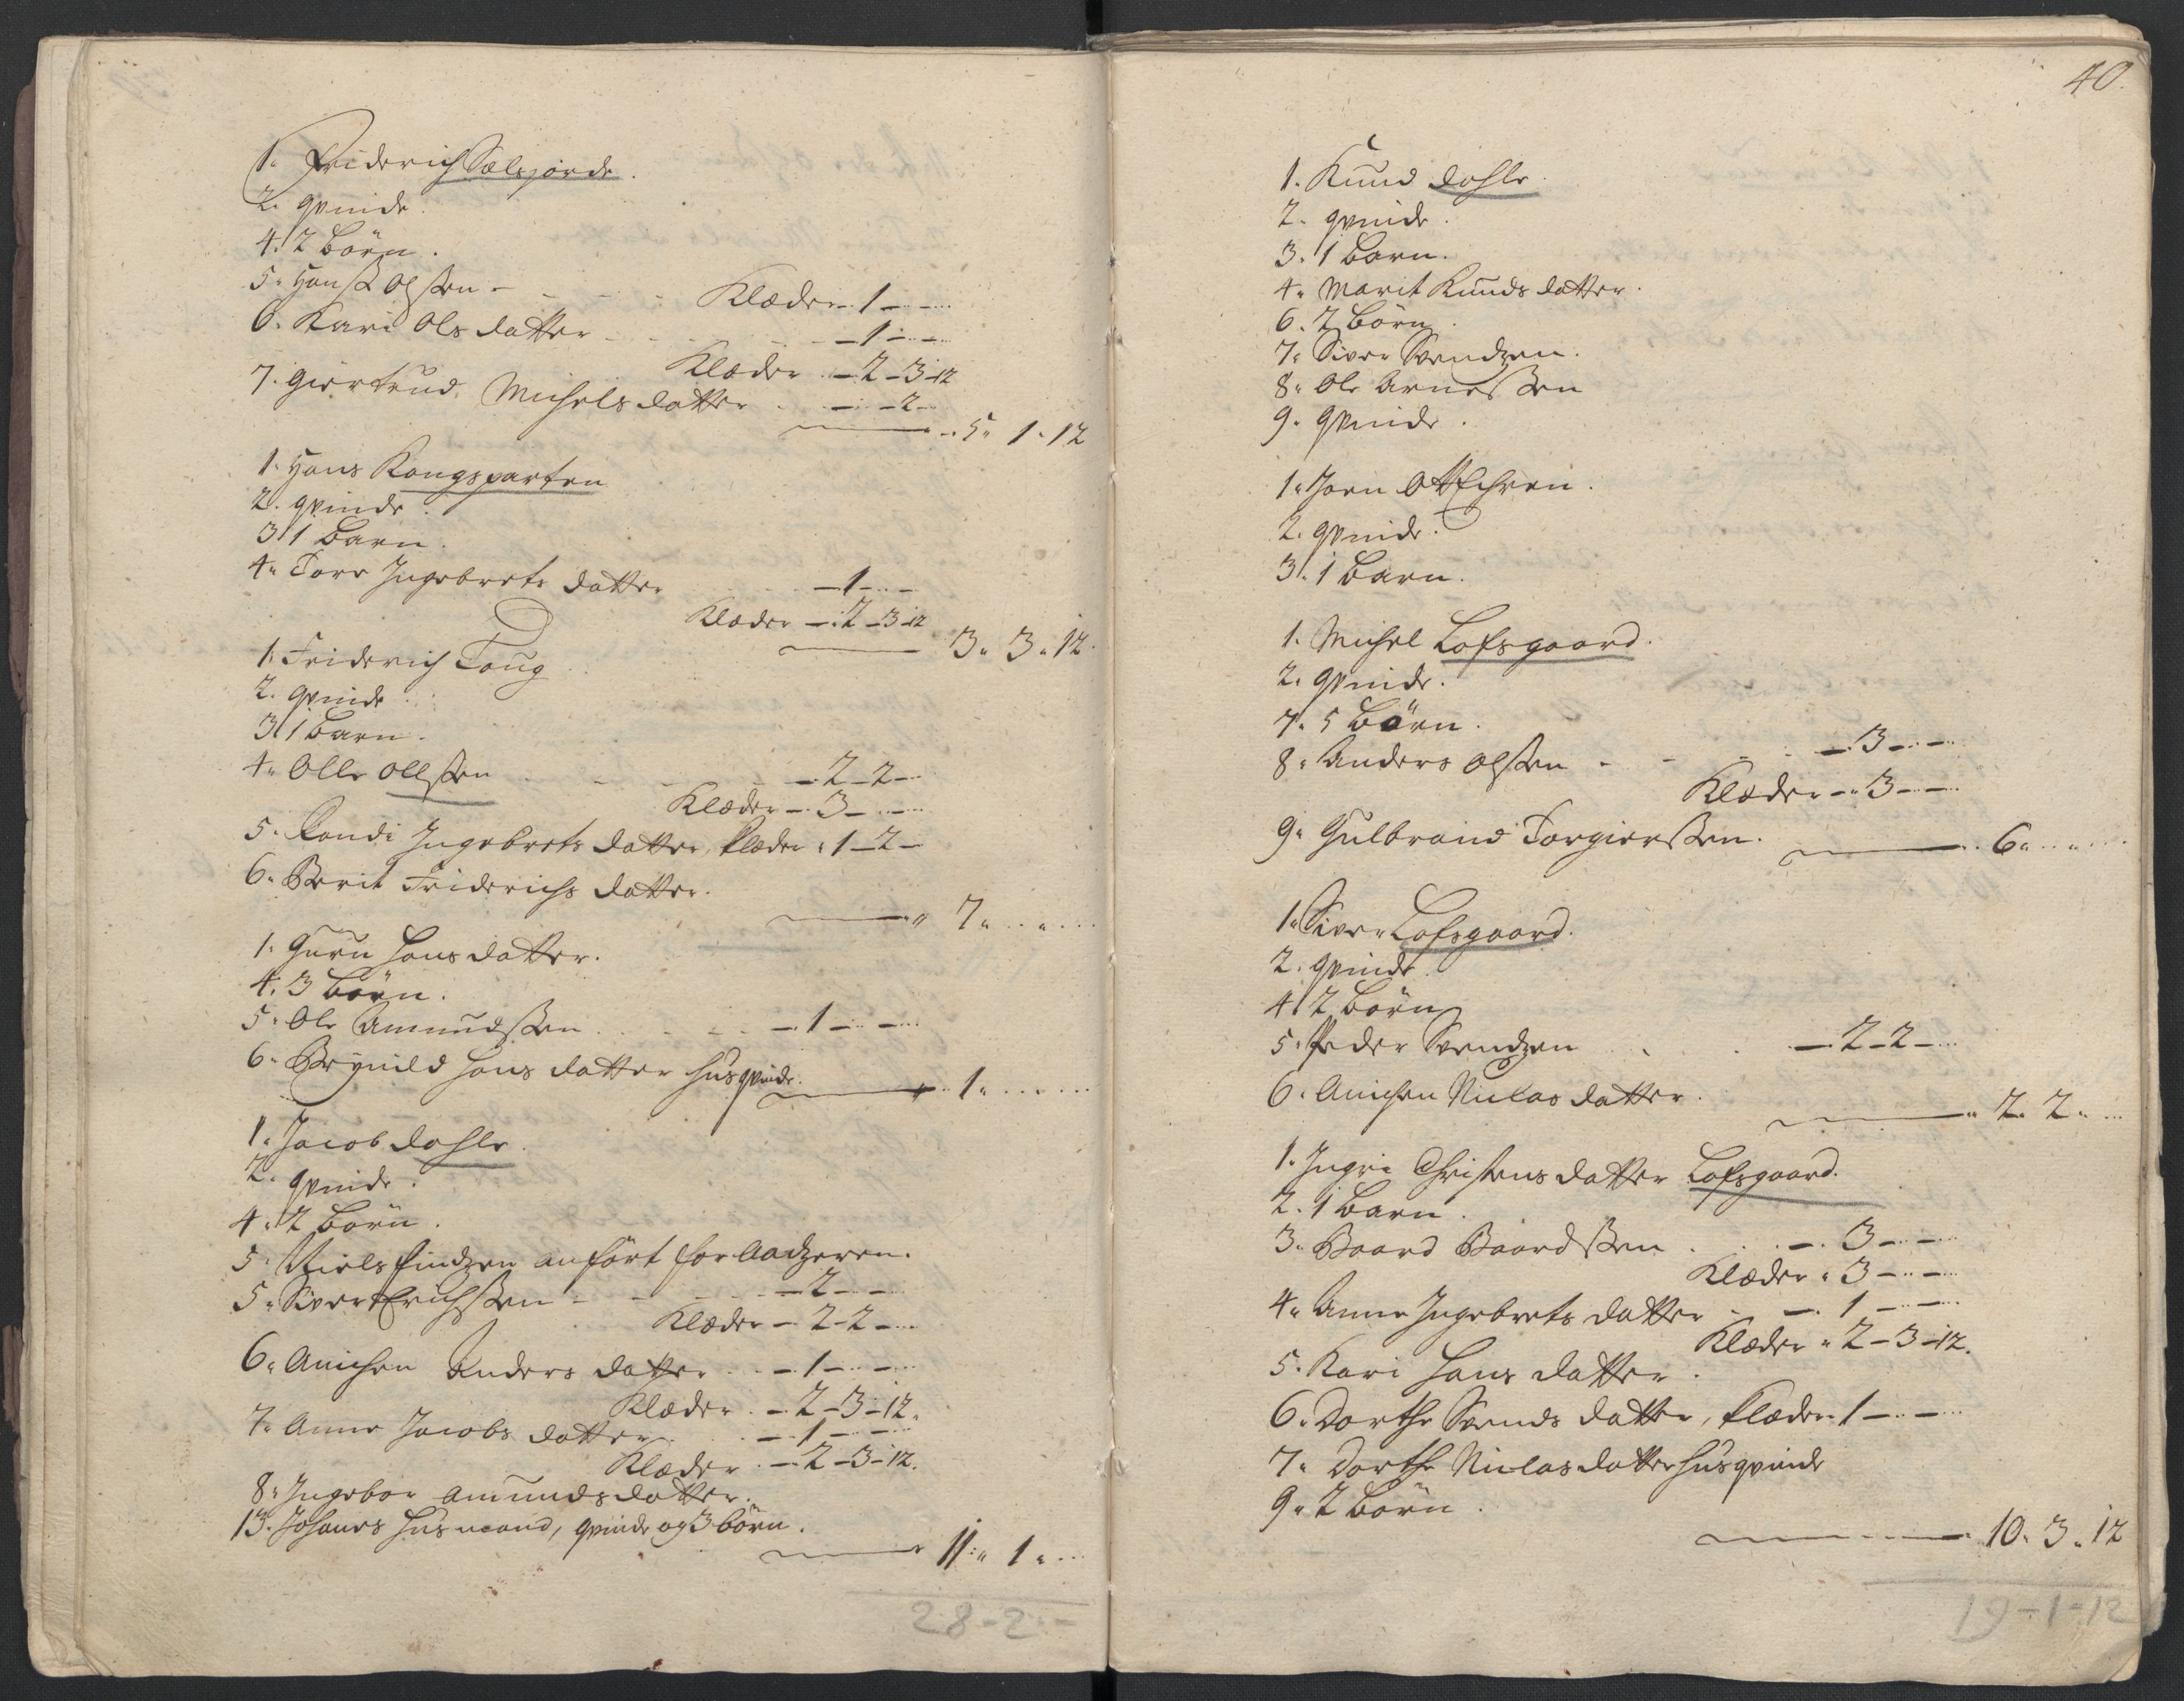 1. Friderich Sælsjorde.
2. qvinde.
4. 2 börn.
5. Hans Olssen - - - -
Klæder - 1 - - -
6. Kari Ols datter - - - 1 - - -
Klæder - 2 - 3 - 12
7. Giertrud Michels datter - - 2 -
5. 1. 12
1. Hans Kongsparten
2. qvinde.
3. 1 barn.
4. Tore Ingebrets datter - 1 - - -
Klæder - 2 - 3 - 12
3. 3. 12.
1. Friderich Toug
2. qvinde.
3. 1 barn.
4. Olle Ollssen - - - 2 - 2 -
Klæder - 3 - - -
5. Randi Ingebrets datter, klæder 1 - 2 -
6. Berit Friderichs datter.
7. - - -
1. Guru Hans datter.
4. 3 börn.
5. Ole Amundssen - - - 1 - - -
6. Brynild Hans datter husqvinde.
1. - - -
1. Jacob Dahle.
2. qvinde.
4. 2 börn.
5. Niels Findzen anfört for
5. Siver Erichssen - - - 2 - - -
Klæder - 2 - 2 -
6. Anichen Anders datter - 1 - - -
Klæder - 2 - 3 - 12.
7. Anne Jacobs datter - 1 - - -
Klæder - 2 - 3 - 12.
8. Ingebor Amunds datter.
13. Johanes husmand, qvinde og 3 börn.
11. 1. -
28 - 2 - -
40.
1. Knud Dahle.
2. qvinde.
3. 1 barn.
4. Marit Knuds datter.
6. 2 börn.
7. Siver Svendzen.
8. Ole Arnessen
9. qvinde.
1. Joen
2. qvinde.
3. 1 barn.
1. Michel Lofsgaard.
2. qvinde.
7. 5 börn.
8. Anders Olssen - - - 3 - - -
Klæder - 3 - - -
9. Gulbrand Torgierssen.
6. - - -
1. Siver Lofsgaard.
2. qvinde.
4. 2 börn
5. Peder Svendzen - 2 - 2 -
6. Anichen Niclas datter.
2. 2. -
1. Ingri Christens datter Lofsgaard.
2. 1 barn.
3. Baard Baardssen - 3 - - -
Klæder - 3 - - -
4. Anne Ingebrets datter - 1 - - -
Klæder - 2 - 3 - 12.
5. Kari Hans datter.
6. Dorthe Svends datter, klæder 1 - - -
7. Dorthe Niclas datter husqvinde
9. 2 börn.
10. 3. 12
19 - 1 - 12